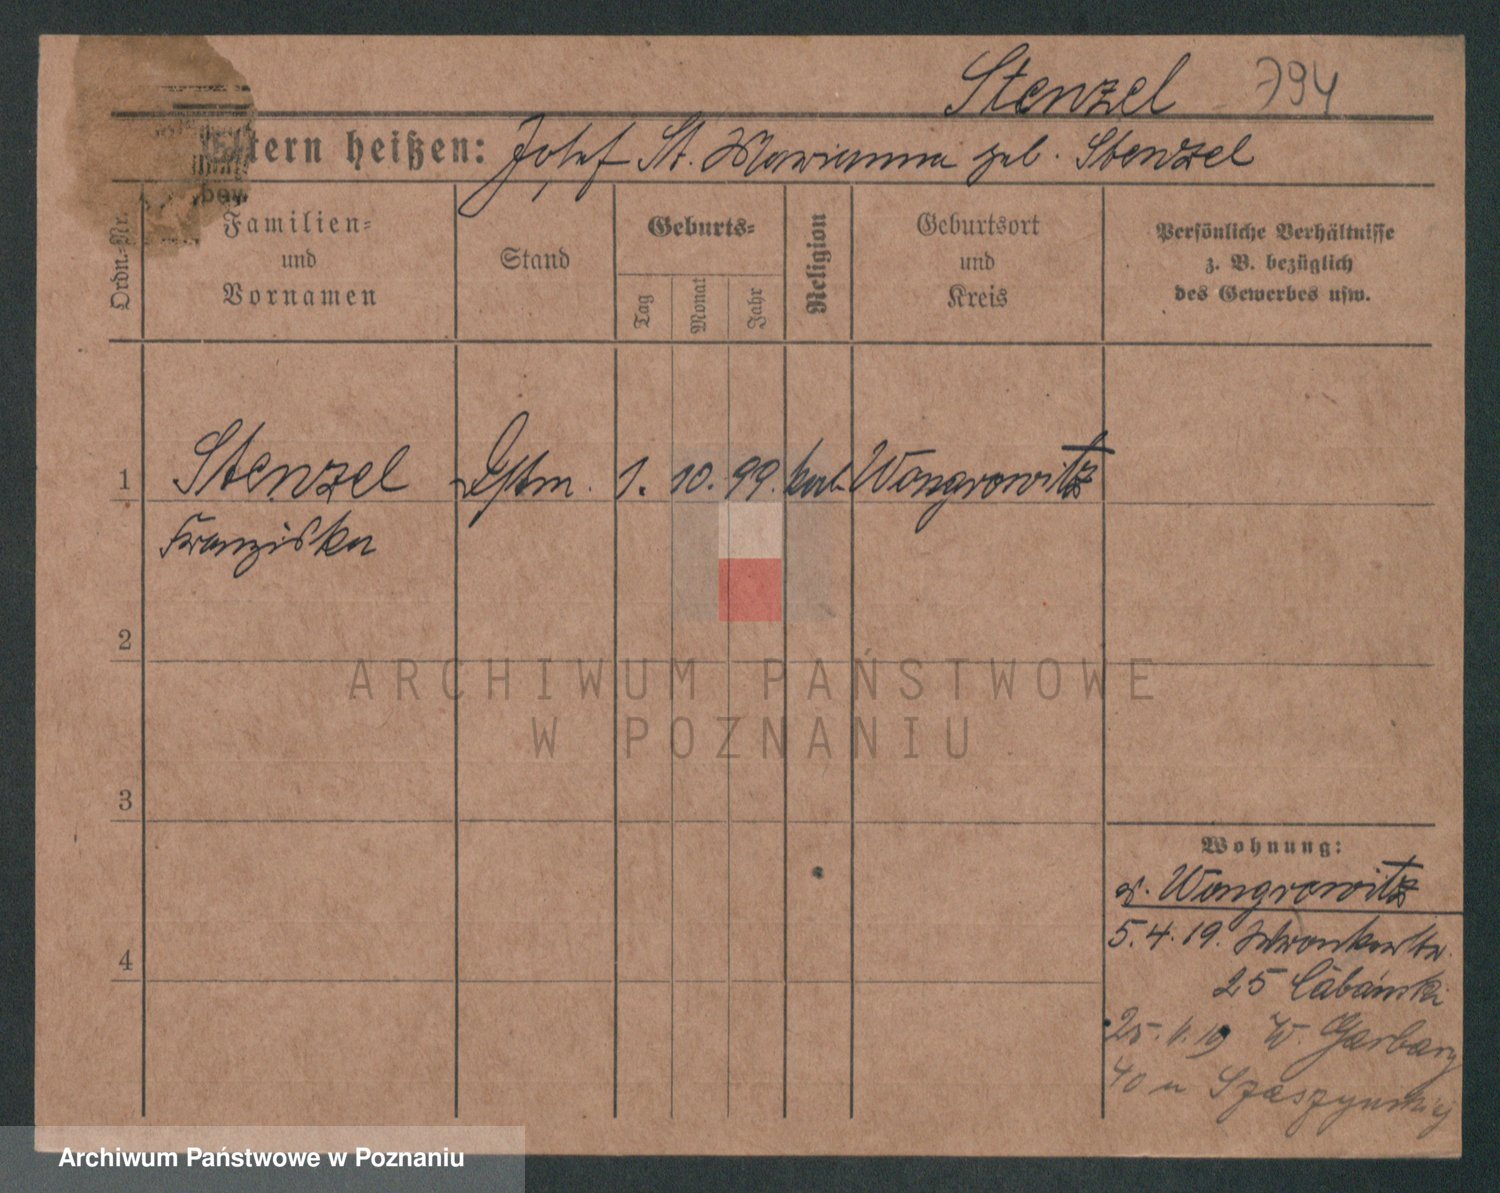 Stenzel 794
Eltern heißen: Josef St. Marianna geb. Stenzel
Ordn.-Nr.
Familien-
und
Vornamen
Stand
Geburts-
Tag
Monat
Jahr
Religion
Geburtsort
und
Kreis
Persönliche Verhältnisse
z. B. bezüglich
des Gewerbes usw.
1 Stenzel 1. 10. 99. kath. Wongrowitz
Franziska
2
ARCHIWUM PAŃSTWOWE
W POZNANIU
3
Wohnung:
v. Wongrowitz
5. 4. 19. Wronkerstr.
25
4
W. Garbary
40 u
Archiwum Państwowe w Poznaniu